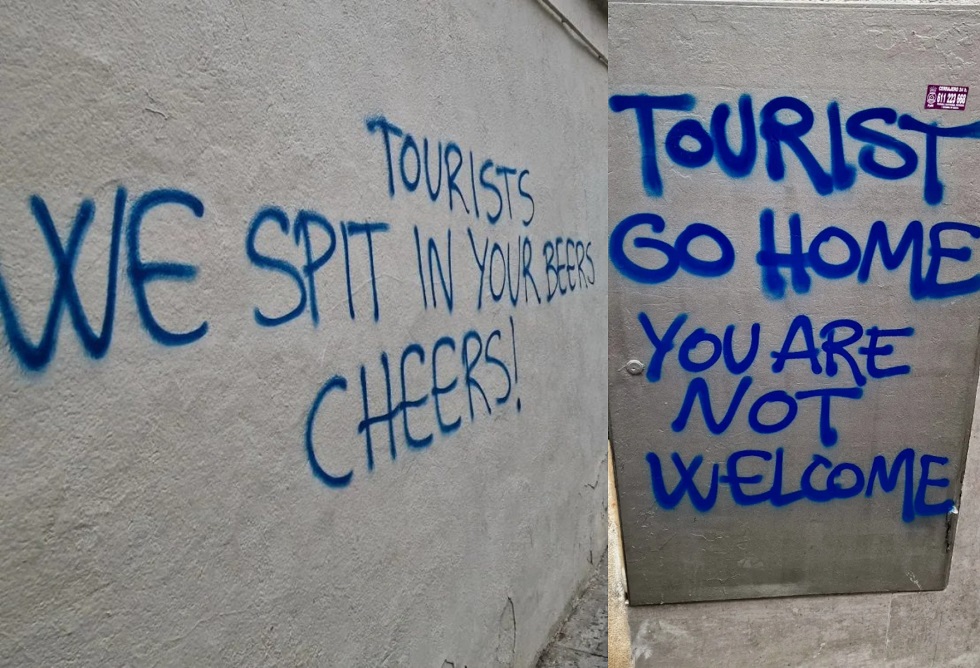 TOURISTS
WE SPIT IN YOUR BEERS
CHEERS!
TOURIST
GO HOME
YOU ARE
NOT
WELCOME
CERRAJERO 24 H.
611 223 966